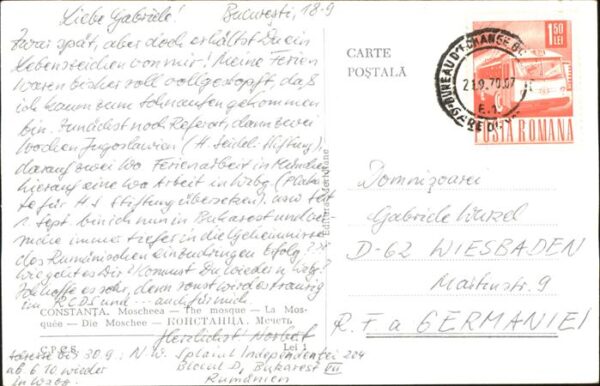 Liebe Gabriele! București, 18.9
Zwar spät, aber doch erhältst Du ein
Lebenszeichen von mir! Meine Ferien
waren bisher voll vollgestopft, daß
ich kaum zum Schnaufen gekommen
bin. Zunächst noch Referat, dann zwei
Wochen Jugoslawien (H. Seidel-Stiftung),
darauf zwei Wo Ferienarbeit in München
hierauf eine Wo Arbeit in Wzbg (Plaka-
te für HS Stiftung übersetzen). und seit
1. Sept bin ich nun in Bukarest und
immer tiefer in die Geheimnisse
des Rumänischen Erfolg?
Wie geht es Dir? Kommst Du wieder n. Wzbg?
Ich hoffe es sehr, denn sonst wird es traurig
im RCDS und ... auch für mich
Herzlichst Norbert
bis 30.9.: N.W. Splaiul Independenței 204
ab 6.10 wieder Blocul D, Bukarest VII
in Wzbg. Rumänien
CONSTANȚA. Moscheea — The mosque — La Mos-
quée — Die Moschee — КОНСТАНЦА. Мечеть
C.P.C.S. Lei 1
Editura Meridiane
CARTE
POȘTALĂ
1,50
LEI
POSTA ROMANA
BUREAU D'ECHANGE
21.9.70.07
Domnișoarei
Gabriele
D-62 WIESBADEN
Martinstr. 9
R.F. a GERMANIEI